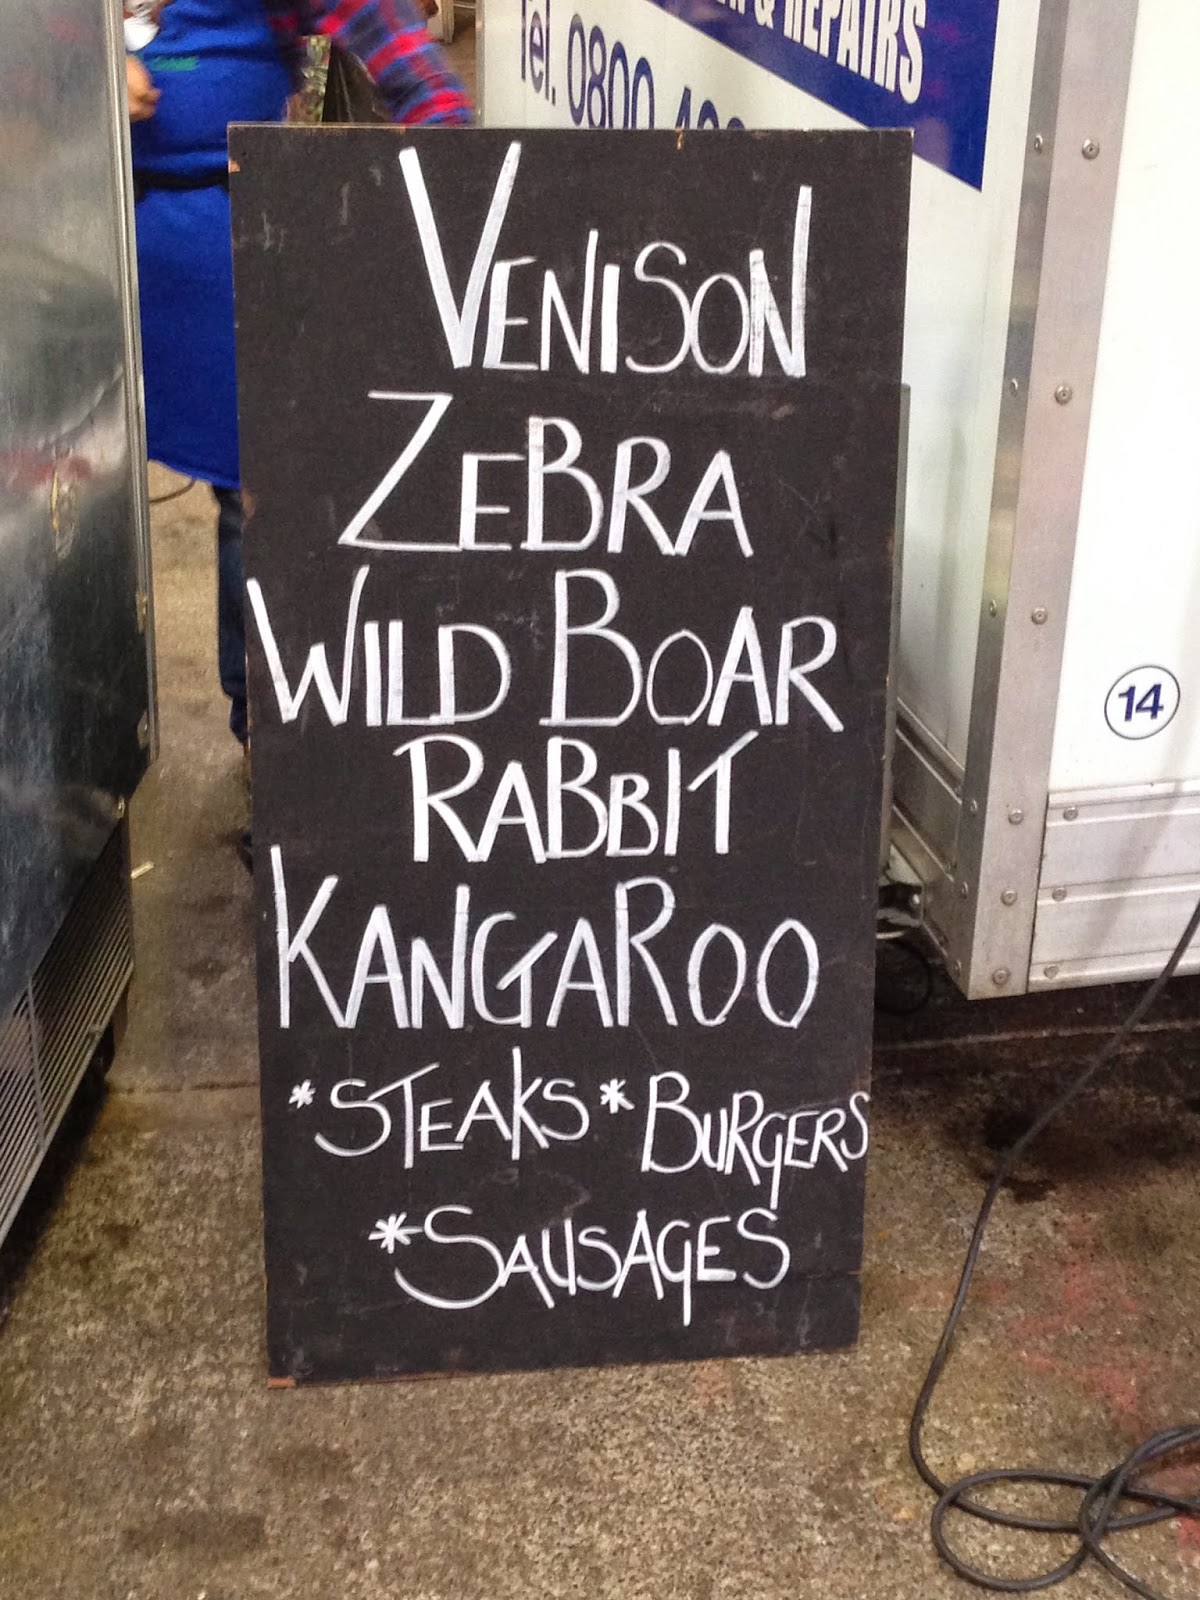 & REPAIRS
Tel. 0800
VENISON
ZEBRA
WILD BOAR
RABBIT
KANGAROO
*STEAKS *BURGERS
*SAUSAGES
14